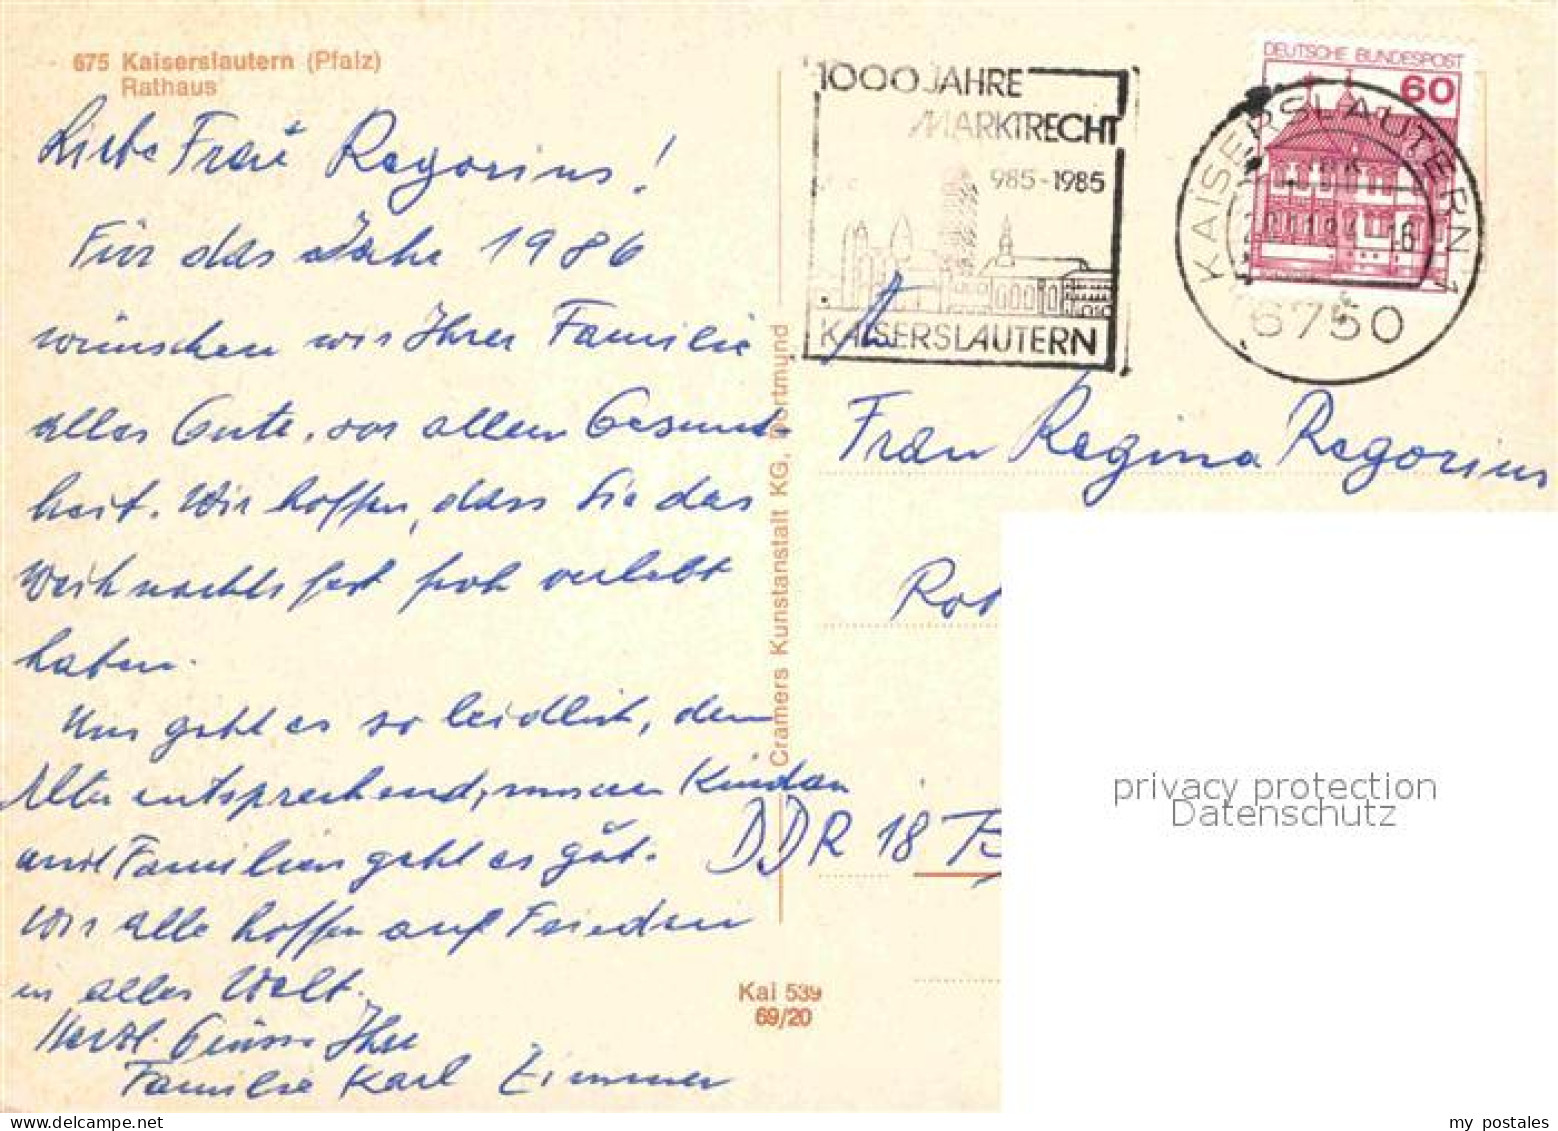 675 Kaiserslautern (Pfalz)
Rathaus
Liebe Frau Regorius!
Für das Jahr 1986
wünschen wir Ihrer Familie
alles Gute, vor allem Gesund-
heit. Wir hoffen, dass Sie das
Weihnachtsfest froh verlebt
haben.
Uns geht es so leidlich, dem
Alter entsprechend, unseren Kindern
und Familien geht es gut.
Wir alle hoffen auf Frieden
in aller Welt.
Herzl. Grüsse Ihre
Familie Karl Zimmer
Cramers Kunstanstalt KG, Dortmund
Kai 539
69/20
1000 JAHRE
MARKTRECHT
985-1985
KAISERSLAUTERN
DEUTSCHE BUNDESPOST
60
KAISERSLAUTERN 1
6750
Frau Regina Regorius
Rot
DDR 18 B
privacy protection
Datenschutz
my postales